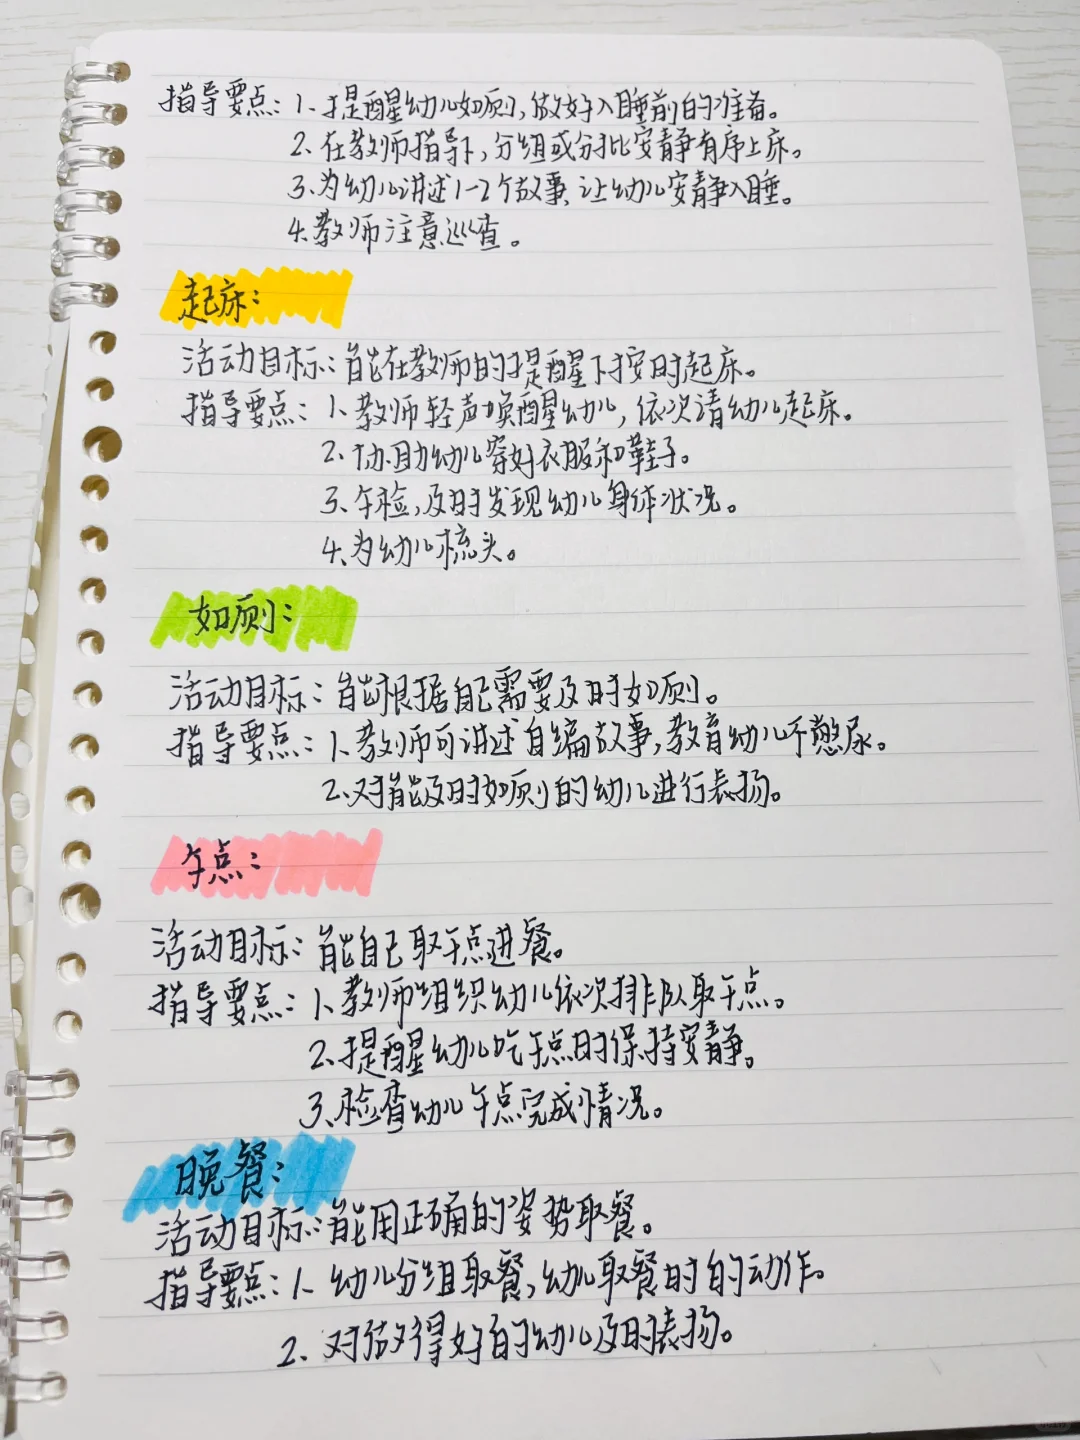 指导要点:1、提醒幼儿如厕,做好入睡前的准备。
2、在教师指导下,分组或分批安静有序上床。
3、为幼儿讲述1-2个故事,让幼儿安静入睡。
4、教师注意巡查。
起床:
活动目标:能在教师的提醒下按时起床。
指导要点:1、教师轻声唤醒幼儿,依次请幼儿起床。
2、协助幼儿穿好衣服和鞋子。
3、午检,及时发现幼儿身体状况。
4、为幼儿梳头。
如厕:
活动目标:能根据自己需要及时如厕。
指导要点:1、教师可讲述自编故事,教育幼儿不憋尿。
2、对能及时如厕的幼儿进行表扬。
午点:
活动目标:能自己取午点进餐。
指导要点:1、教师组织幼儿依次排队取午点。
2、提醒幼儿吃午点时保持安静。
3、检查幼儿午点完成情况。
晚餐:
活动目标:能用正确的姿势取餐。
指导要点:1、幼儿分组取餐,幼儿取餐时的动作。
2、对做得好的幼儿及时表扬。